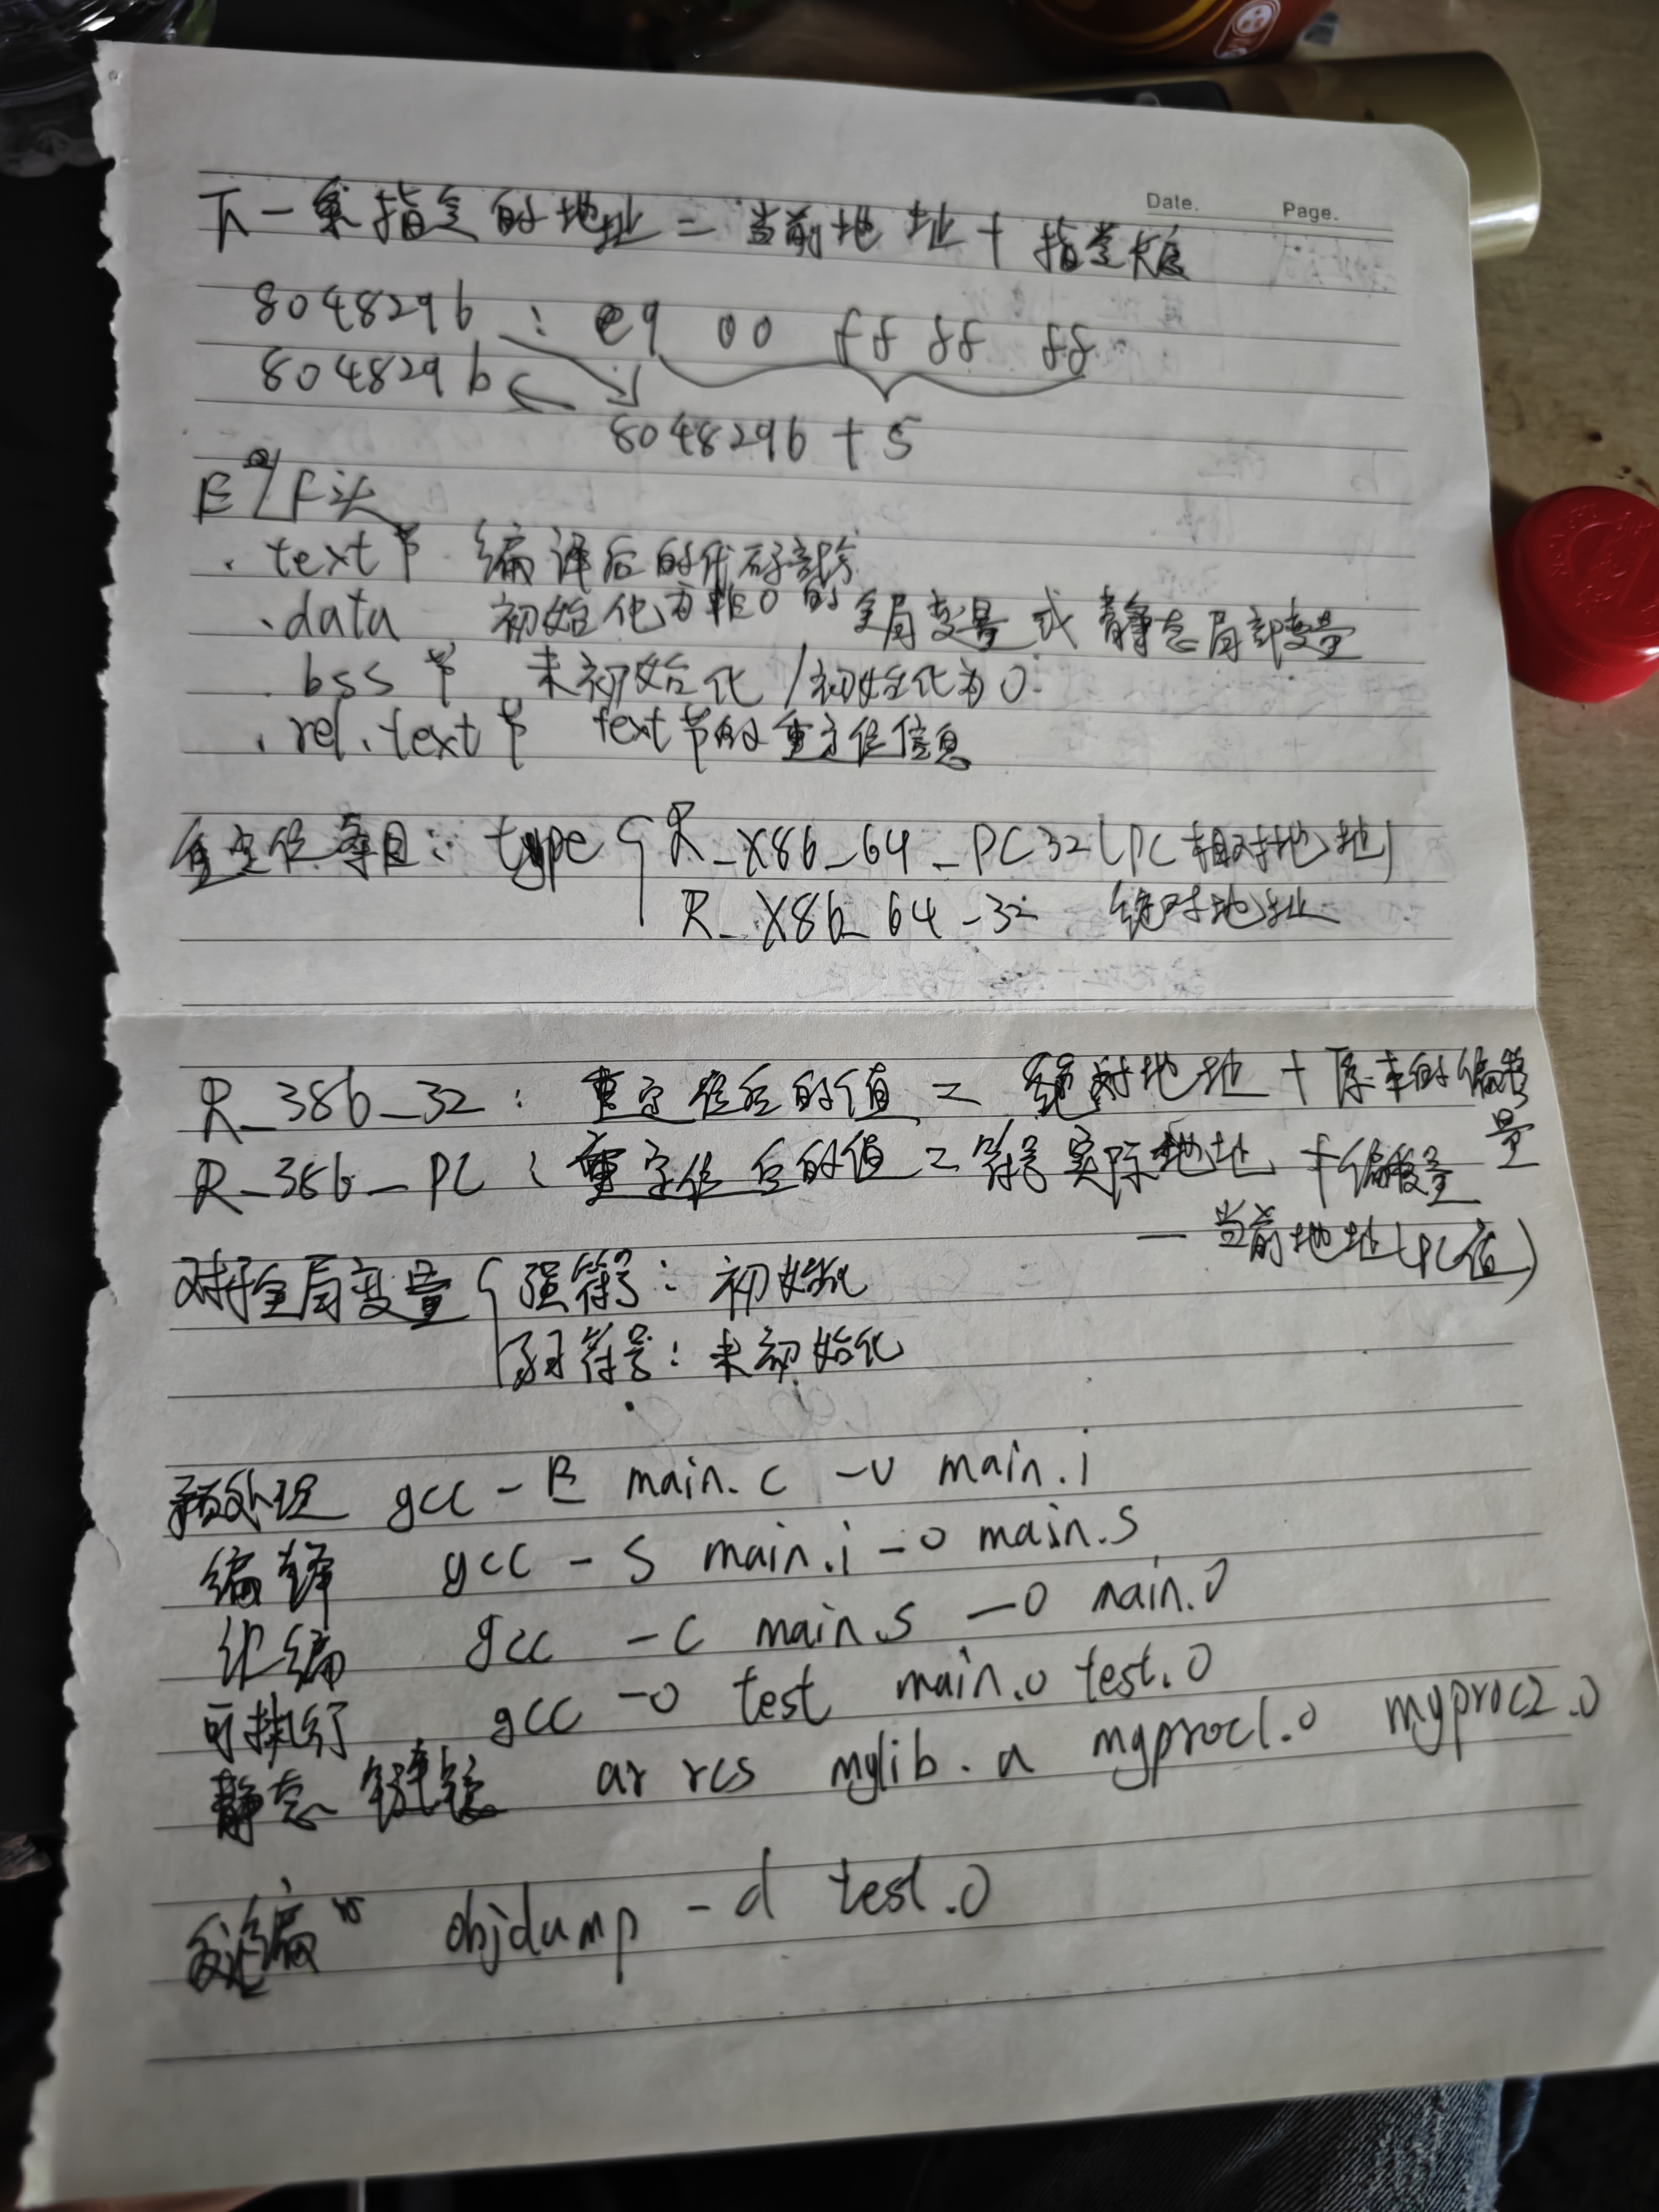 Date. Page.
下一条指令的地址 = 当前地址 + 指令长度
8048296 : e9 00 ff ff ff
804829b
8048296 + 5
ELF头
.text节 编译后的代码部分
.data 初始化为非0的全局变量或静态局部变量
.bss节 未初始化/初始化为0.
.rel.text节 text节的重定位信息
重定位条目: type { R_X86_64_PC32(PC相对地址)
R_X86_64-32 绝对地址
R_386_32: 重定位后的值 = 绝对地址 + 原来的偏移量
R_386_PC: 重定位后的值 = 符号实际地址 + 偏移量
- 当前地址(PC值)
对于全局变量 { 强符号: 初始化
弱符号: 未初始化
预处理 gcc -E main.c -o main.i
编译 gcc -S main.i -o main.s
汇编 gcc -c main.s -o main.o
可执行 gcc -o test main.o test.o
静态链接 ar rcs mylib.a myproc1.o myproc2.o
反汇编 objdump -d test.o